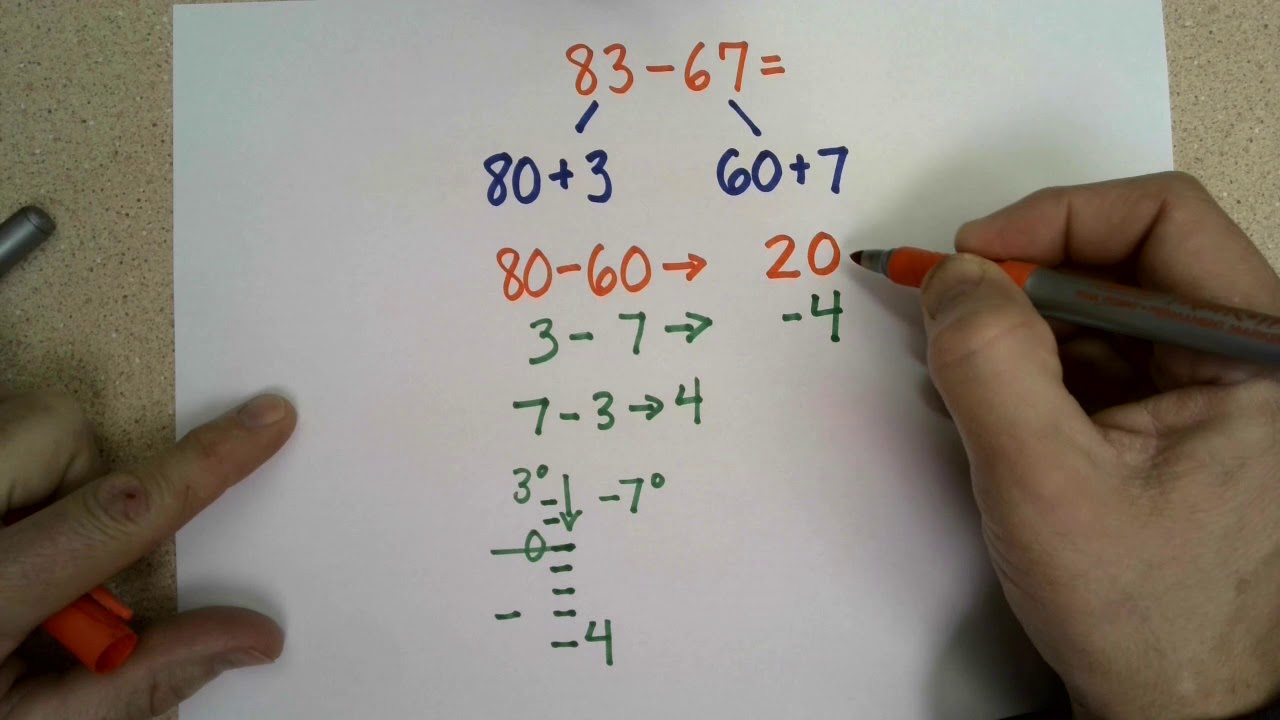 83-67=
80+3 60+7
80-60→ 20
3-7→ -4
7-3→4
3° -7°
0
-4